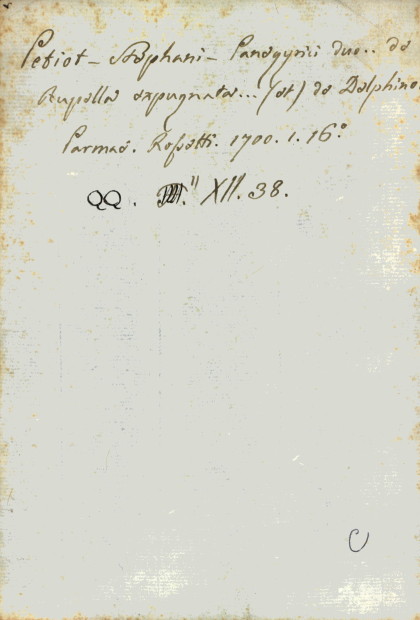 Petiot - Stephani - Panegyrici duo.. de
Rupella expugnata... (et) de Delphino.
Parmae. Rossetti. 1700. 1. 16°
QQ. XII. 38.
C